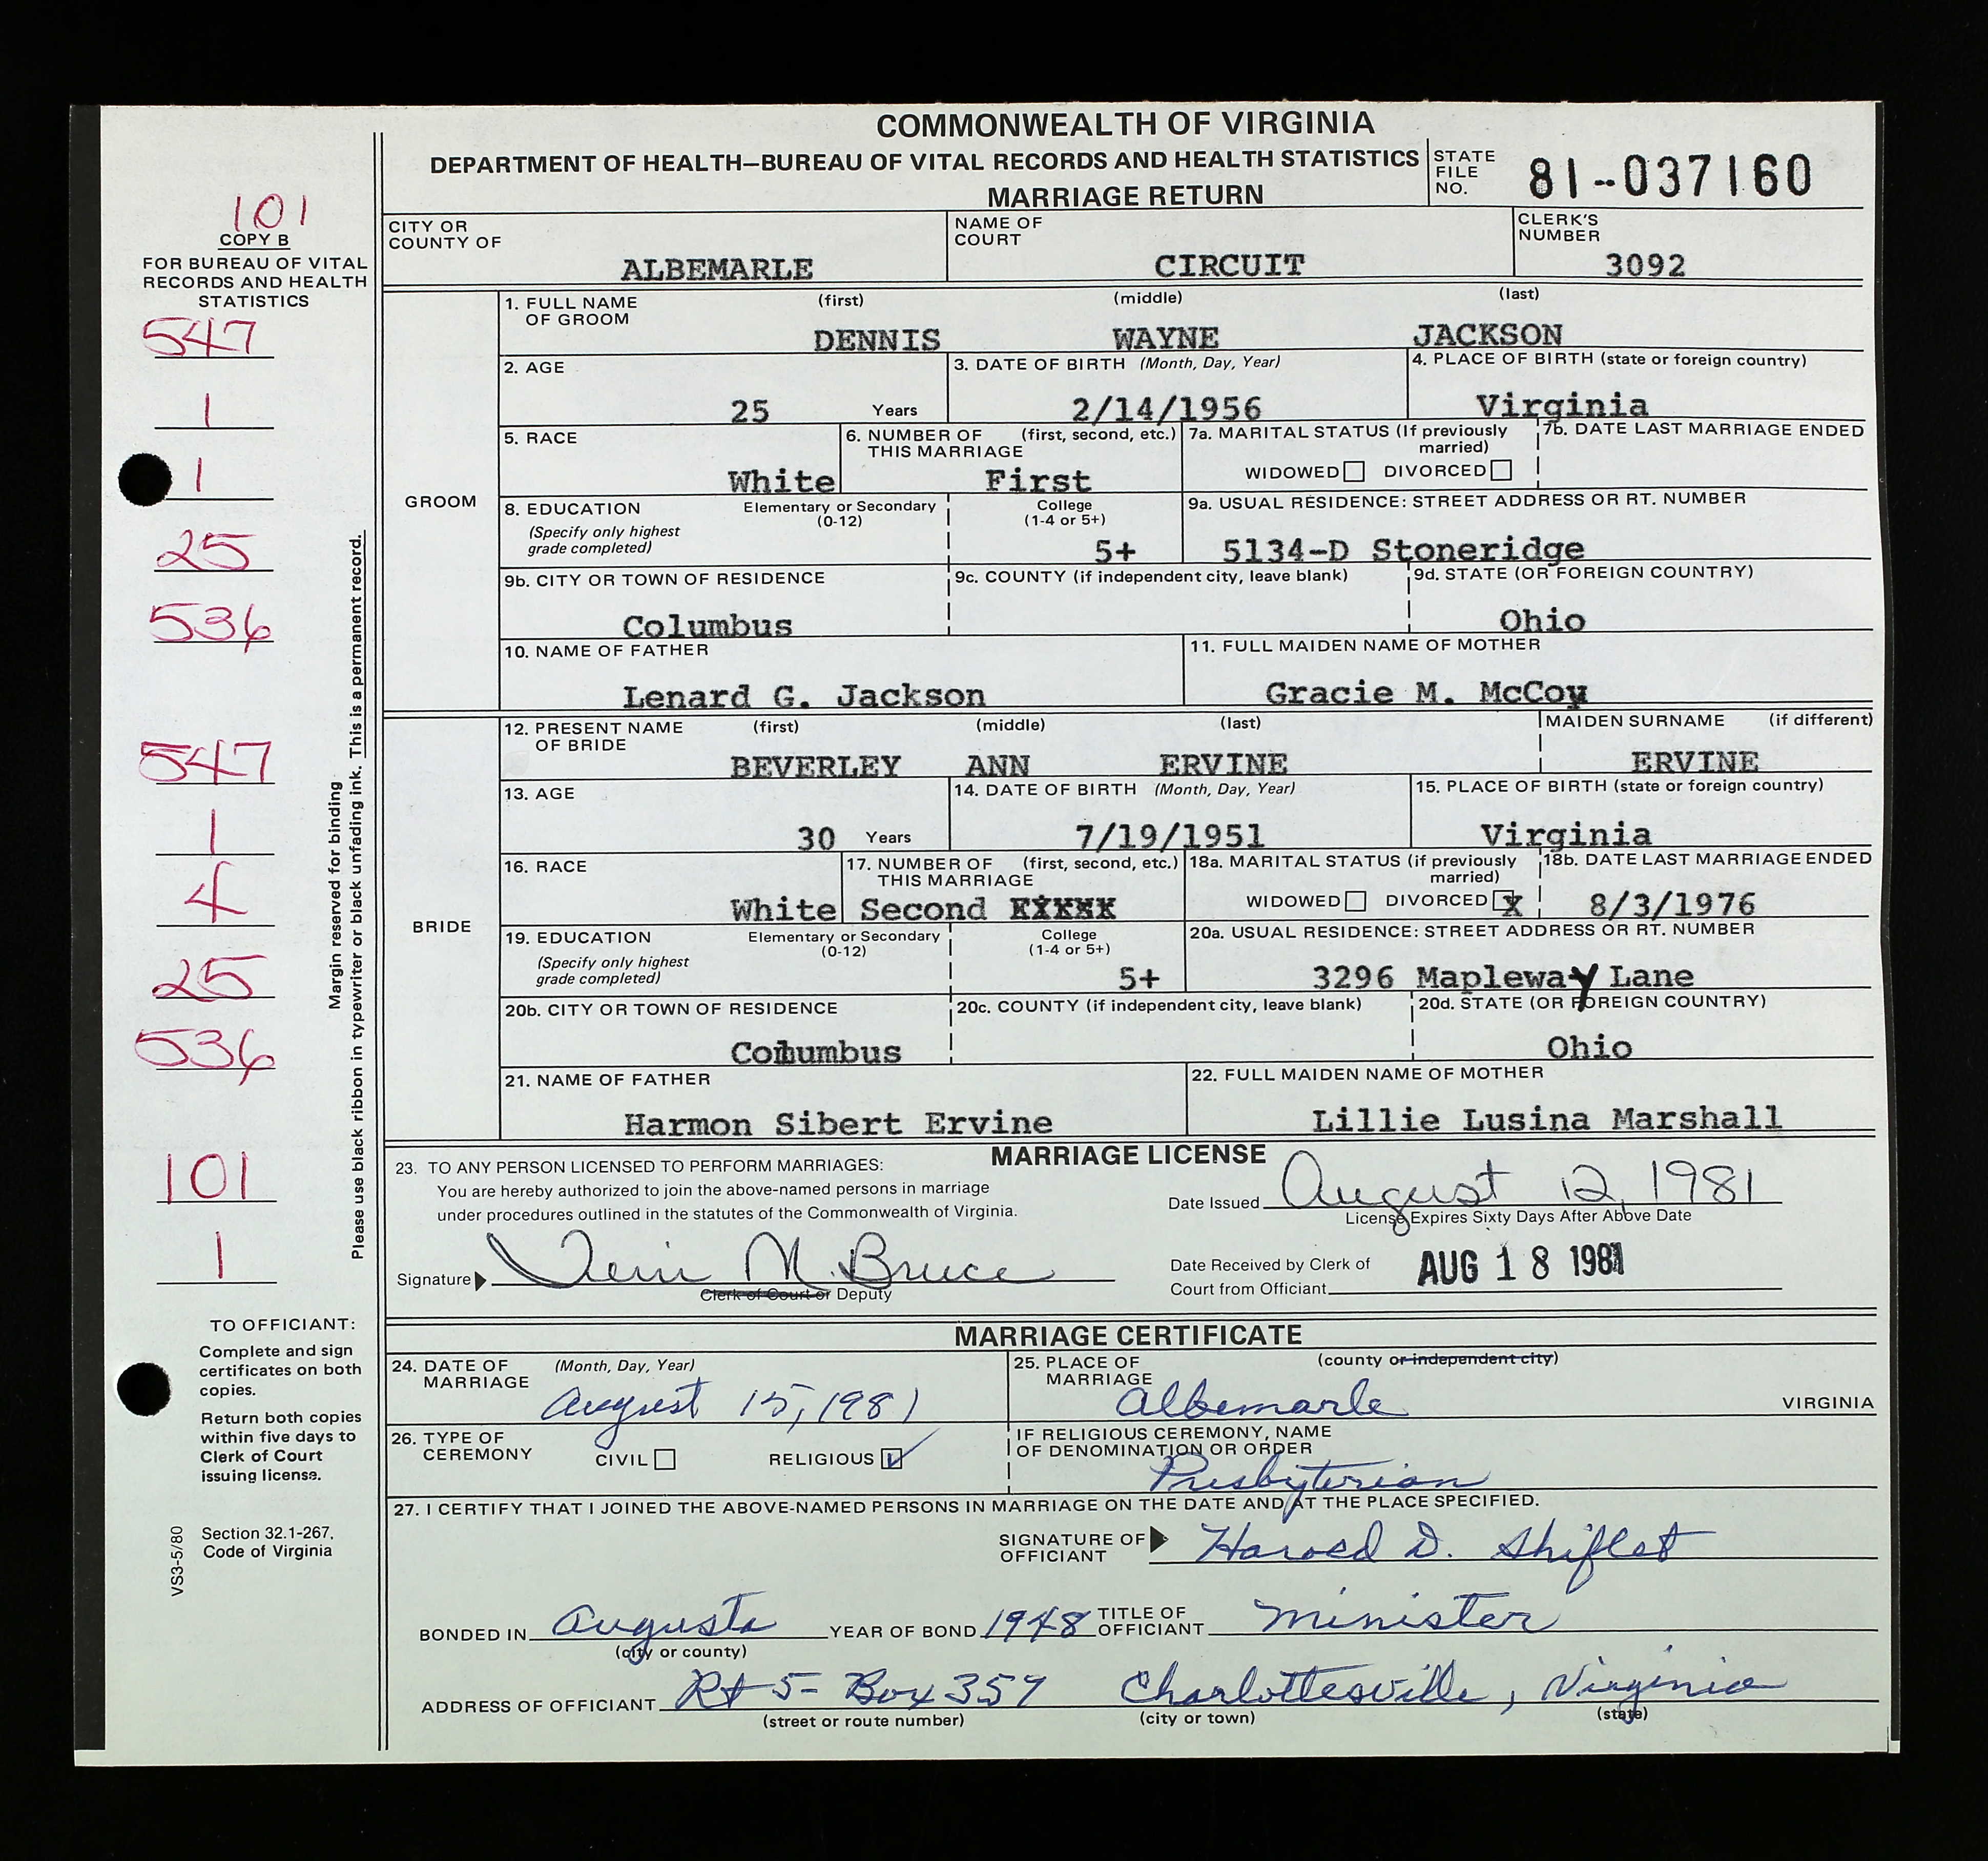 COMMONWEALTH OF VIRGINIA
DEPARTMENT OF HEALTH—BUREAU OF VITAL RECORDS AND HEALTH STATISTICS
MARRIAGE RETURN
STATE FILE NO. 81-037160
101
COPY B
FOR BUREAU OF VITAL
RECORDS AND HEALTH
STATISTICS
547
1
1
25
536
547
1
4
25
536
101
1
Margin reserved for binding
Please use black ribbon in typewriter or black unfading ink. This is a permanent record.
TO OFFICIANT:
Complete and sign
certificates on both
copies.
Return both copies
within five days to
Clerk of Court
issuing license.
Section 32.1-267,
Code of Virginia
VS3-5/80
CITY OR COUNTY OF ALBEMARLE
NAME OF COURT CIRCUIT
CLERK'S NUMBER 3092
GROOM
1. FULL NAME OF GROOM (first) (middle) (last)
DENNIS WAYNE JACKSON
2. AGE 25 Years
3. DATE OF BIRTH (Month, Day, Year) 2/14/1956
4. PLACE OF BIRTH (state or foreign country) Virginia
5. RACE White
6. NUMBER OF THIS MARRIAGE (first, second, etc.) First
7a. MARITAL STATUS (If previously married) WIDOWED DIVORCED
7b. DATE LAST MARRIAGE ENDED
8. EDUCATION (Specify only highest grade completed) Elementary or Secondary (0-12) College (1-4 or 5+) 5+
9a. USUAL RESIDENCE: STREET ADDRESS OR RT. NUMBER 5134-D Stoneridge
9b. CITY OR TOWN OF RESIDENCE Columbus
9c. COUNTY (if independent city, leave blank)
9d. STATE (OR FOREIGN COUNTRY) Ohio
10. NAME OF FATHER Lenard G. Jackson
11. FULL MAIDEN NAME OF MOTHER Gracie M. McCoy
BRIDE
12. PRESENT NAME OF BRIDE (first) (middle) (last) MAIDEN SURNAME (if different)
BEVERLEY ANN ERVINE ERVINE
13. AGE 30 Years
14. DATE OF BIRTH (Month, Day, Year) 7/19/1951
15. PLACE OF BIRTH (state or foreign country) Virginia
16. RACE White
17. NUMBER OF THIS MARRIAGE (first, second, etc.) Second
18a. MARITAL STATUS (if previously married) WIDOWED DIVORCED X
18b. DATE LAST MARRIAGE ENDED 8/3/1976
19. EDUCATION (Specify only highest grade completed) Elementary or Secondary (0-12) College (1-4 or 5+) 5+
20a. USUAL RESIDENCE: STREET ADDRESS OR RT. NUMBER 3296 Mapleway Lane
20b. CITY OR TOWN OF RESIDENCE Columbus
20c. COUNTY (if independent city, leave blank)
20d. STATE (OR FOREIGN COUNTRY) Ohio
21. NAME OF FATHER Harmon Sibert Ervine
22. FULL MAIDEN NAME OF MOTHER Lillie Lusina Marshall
MARRIAGE LICENSE
23. TO ANY PERSON LICENSED TO PERFORM MARRIAGES:
You are hereby authorized to join the above-named persons in marriage
under procedures outlined in the statutes of the Commonwealth of Virginia.
Date Issued August 12, 1981
License Expires Sixty Days After Above Date
Signature M. Bruce
Clerk of Court or Deputy
Date Received by Clerk of
Court from Officiant AUG 18 1981
MARRIAGE CERTIFICATE
24. DATE OF MARRIAGE (Month, Day, Year) August 15, 1981
25. PLACE OF MARRIAGE (county or independent city) Albemarle VIRGINIA
26. TYPE OF CEREMONY CIVIL RELIGIOUS ✓
IF RELIGIOUS CEREMONY, NAME OF DENOMINATION OR ORDER Presbyterian
27. I CERTIFY THAT I JOINED THE ABOVE-NAMED PERSONS IN MARRIAGE ON THE DATE AND AT THE PLACE SPECIFIED.
SIGNATURE OF OFFICIANT Harold D. Shiflet
BONDED IN Augusta YEAR OF BOND 1948 TITLE OF OFFICIANT Minister
(city or county)
ADDRESS OF OFFICIANT Rt 5- Box 359 Charlottesville, Virginia
(street or route number) (city or town) (state)